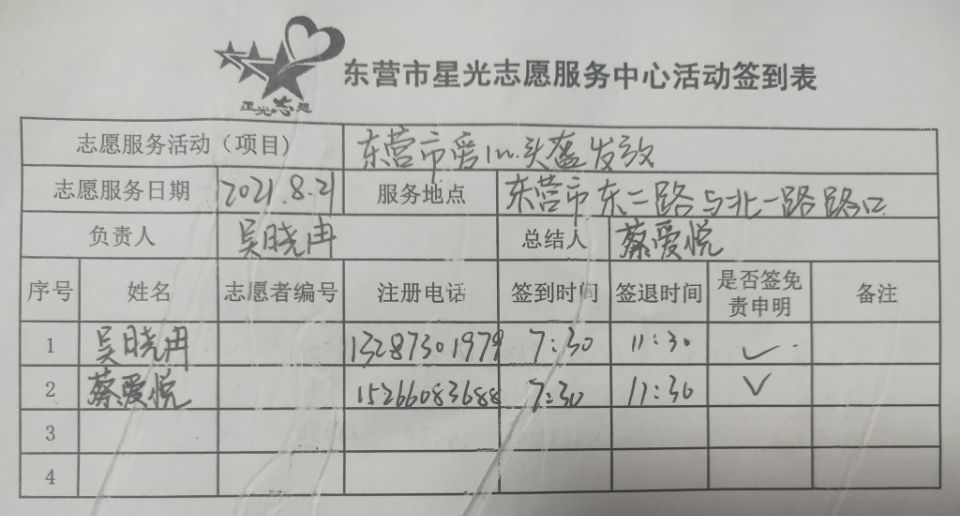 星光志愿
东营市星光志愿服务中心活动签到表
志愿服务活动（项目） 东营市爱1m.头盔发放
志愿服务日期 2021.8.21 服务地点 东营市东二路与北一路路口
负责人 吴晓冉 总结人 蔡爱悦
序号 姓名 志愿者编号 注册电话 签到时间 签退时间 是否签免责申明 备注
1 吴晓冉 13287301979 7:30 11:30 ✓
2 蔡爱悦 15266083688 7:30 11:30 ✓
3
4